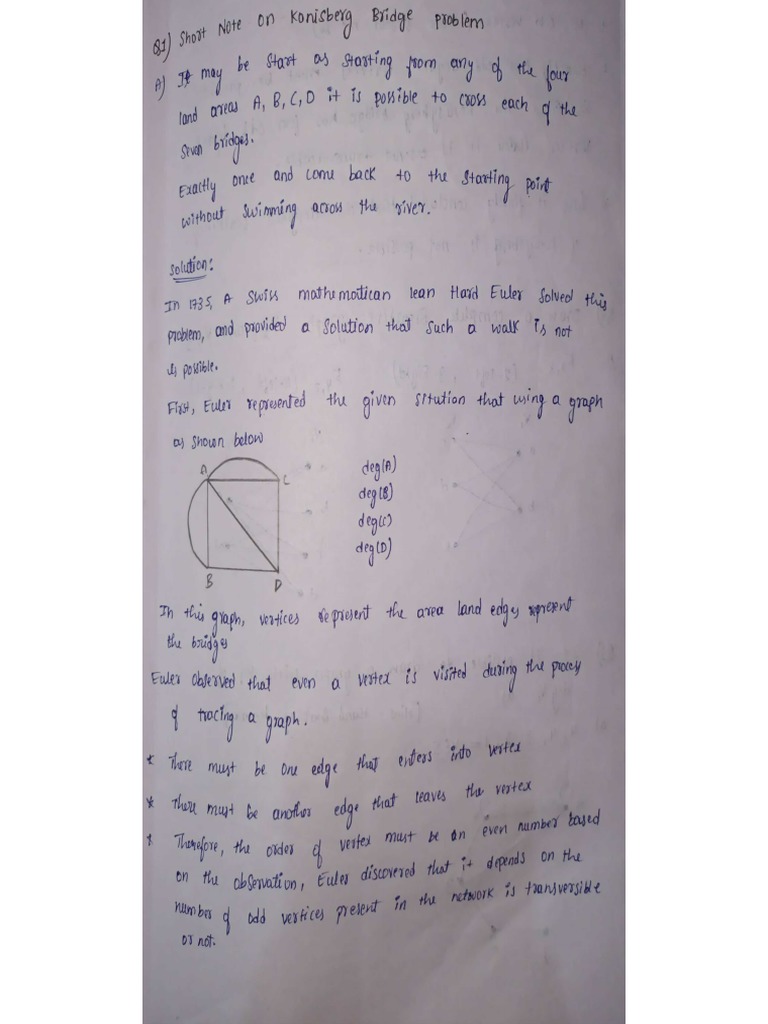 Q1) Short Note on Konisberg Bridge problem
A) It may be start as starting from any of the four
land areas A, B, C, D it is possible to cross each of the
Seven bridges.
Exactly once and come back to the starting point
without swimming across the river.
Solution:
In 1735, A Swiss mathemotican lean Hard Euler solved this
problem, and provided a solution that such a walk is not
is possible.
First, Euler represented the given sitution that using a graph
as shown below
A
C
B
D
deg(A)
deg(B)
deg(C)
deg(D)
In this graph, vertices represent the area land edges represent
the bridges
Euler observed that even a vertex is visited during the process
of tracing a graph.
* There must be one edge that enters into vertex
* There must be another edge that leaves the vertex
* Therefore, the order of vertex must be an even number based
on the observation, Euler discovered that it depends on the
number of odd vertices present in the network is transversible
or not.